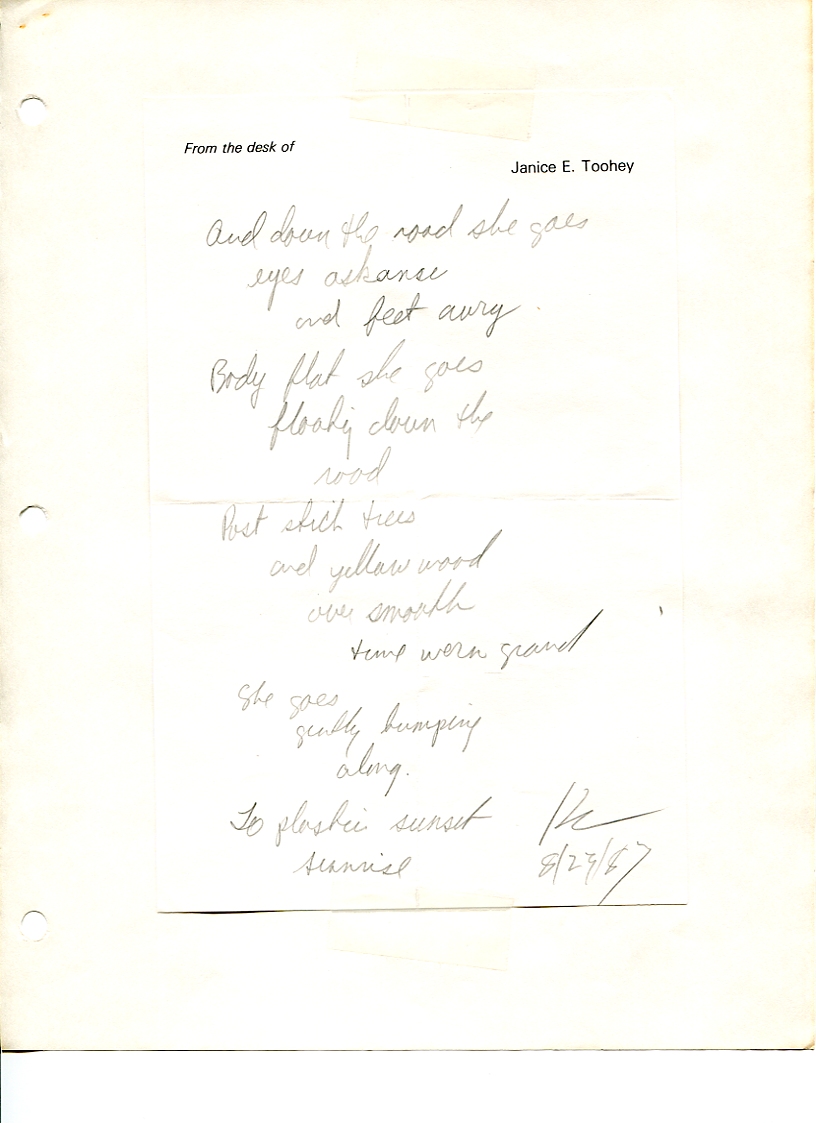 From the desk of
Janice E. Toohey
And down the road she goes
eyes askanse
and feet awry.
Body flat she goes
down the
road
Past stick trees
and yellow wood
over smooth
time worn
She goes
gently bumping
along.
To plastic sunset
sunrise
8/27/87